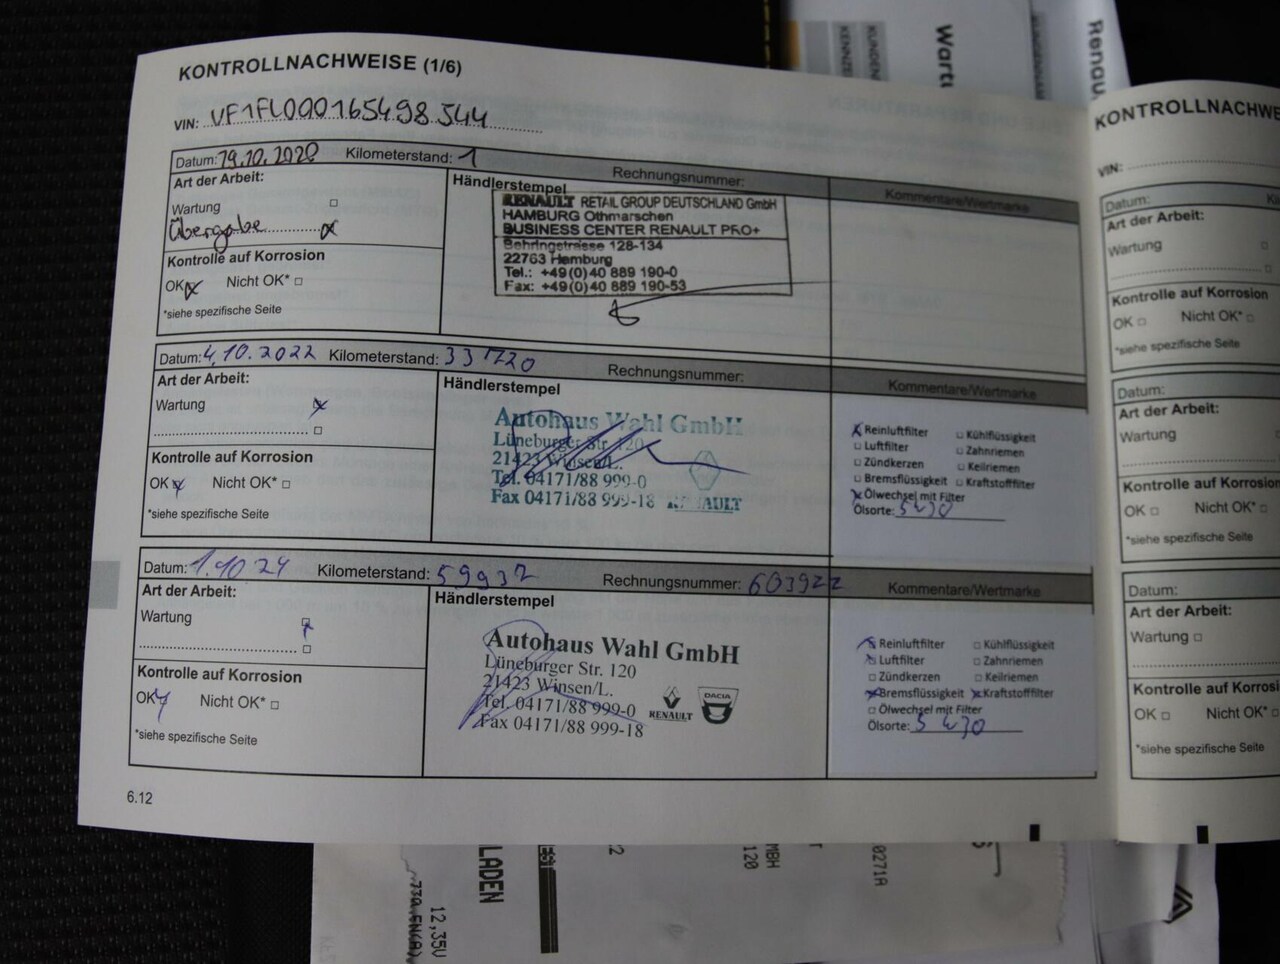 KONTROLLNACHWEISE (1/6)
VIN: VF1FL000165498544
Datum: 19.10.2020 Kilometerstand: 1 Rechnungsnummer: Kommentare/Wertmarke
Art der Arbeit:
Wartung
Übergabe
Kontrolle auf Korrosion
OK Nicht OK*
*siehe spezifische Seite
Händlerstempel
RENAULT RETAIL GROUP DEUTSCHLAND GmbH
HAMBURG Othmarschen
BUSINESS CENTER RENAULT PRO+
Behringstrasse 128-134
22763 Hamburg
Tel.: +49(0)40 889 190-0
Fax: +49(0)40 889 190-53
Datum: 4.10.2022 Kilometerstand: Rechnungsnummer: Kommentare/Wertmarke
Art der Arbeit:
Wartung
Kontrolle auf Korrosion
OK Nicht OK*
*siehe spezifische Seite
Händlerstempel
Autohaus Wahl GmbH
Lüneburger Str. 120
21423 Winsen/L.
Tel. 04171/88 999-0
Fax 04171/88 999-18 RENAULT
Reinluftfilter Kühlflüssigkeit
Luftfilter Zahnriemen
Zündkerzen Keilriemen
Bremsflüssigkeit Kraftstofffilter
Ölwechsel mit Filter
Ölsorte: 5W30
Datum: 1.10 24 Kilometerstand: 59937 Rechnungsnummer: 603922 Kommentare/Wertmarke
Art der Arbeit:
Wartung
Kontrolle auf Korrosion
OK Nicht OK*
*siehe spezifische Seite
Händlerstempel
Autohaus Wahl GmbH
Lüneburger Str. 120
21423 Winsen/L.
Tel. 04171/88 999-0
Fax 04171/88 999-18
RENAULT
DACIA
Reinluftfilter Kühlflüssigkeit
Luftfilter Zahnriemen
Zündkerzen Keilriemen
Bremsflüssigkeit Kraftstofffilter
Ölwechsel mit Filter
Ölsorte: 5W30
6.12
KONTROLLNACHWE
VIN:
Datum:
Art der Arbeit:
Wartung
Kontrolle auf Korrosion
OK Nicht OK*
*siehe spezifische Seite
Datum:
Art der Arbeit:
Wartung
Kontrolle auf Korrosion
OK Nicht OK*
*siehe spezifische Seite
Datum:
Art der Arbeit:
Wartung
Kontrolle auf Korrosi
OK Nicht OK*
*siehe spezifische Seite
KUNDEN
KENNZEI
Wart
Renau
LADEN
12,35V
MBH
120
0271A